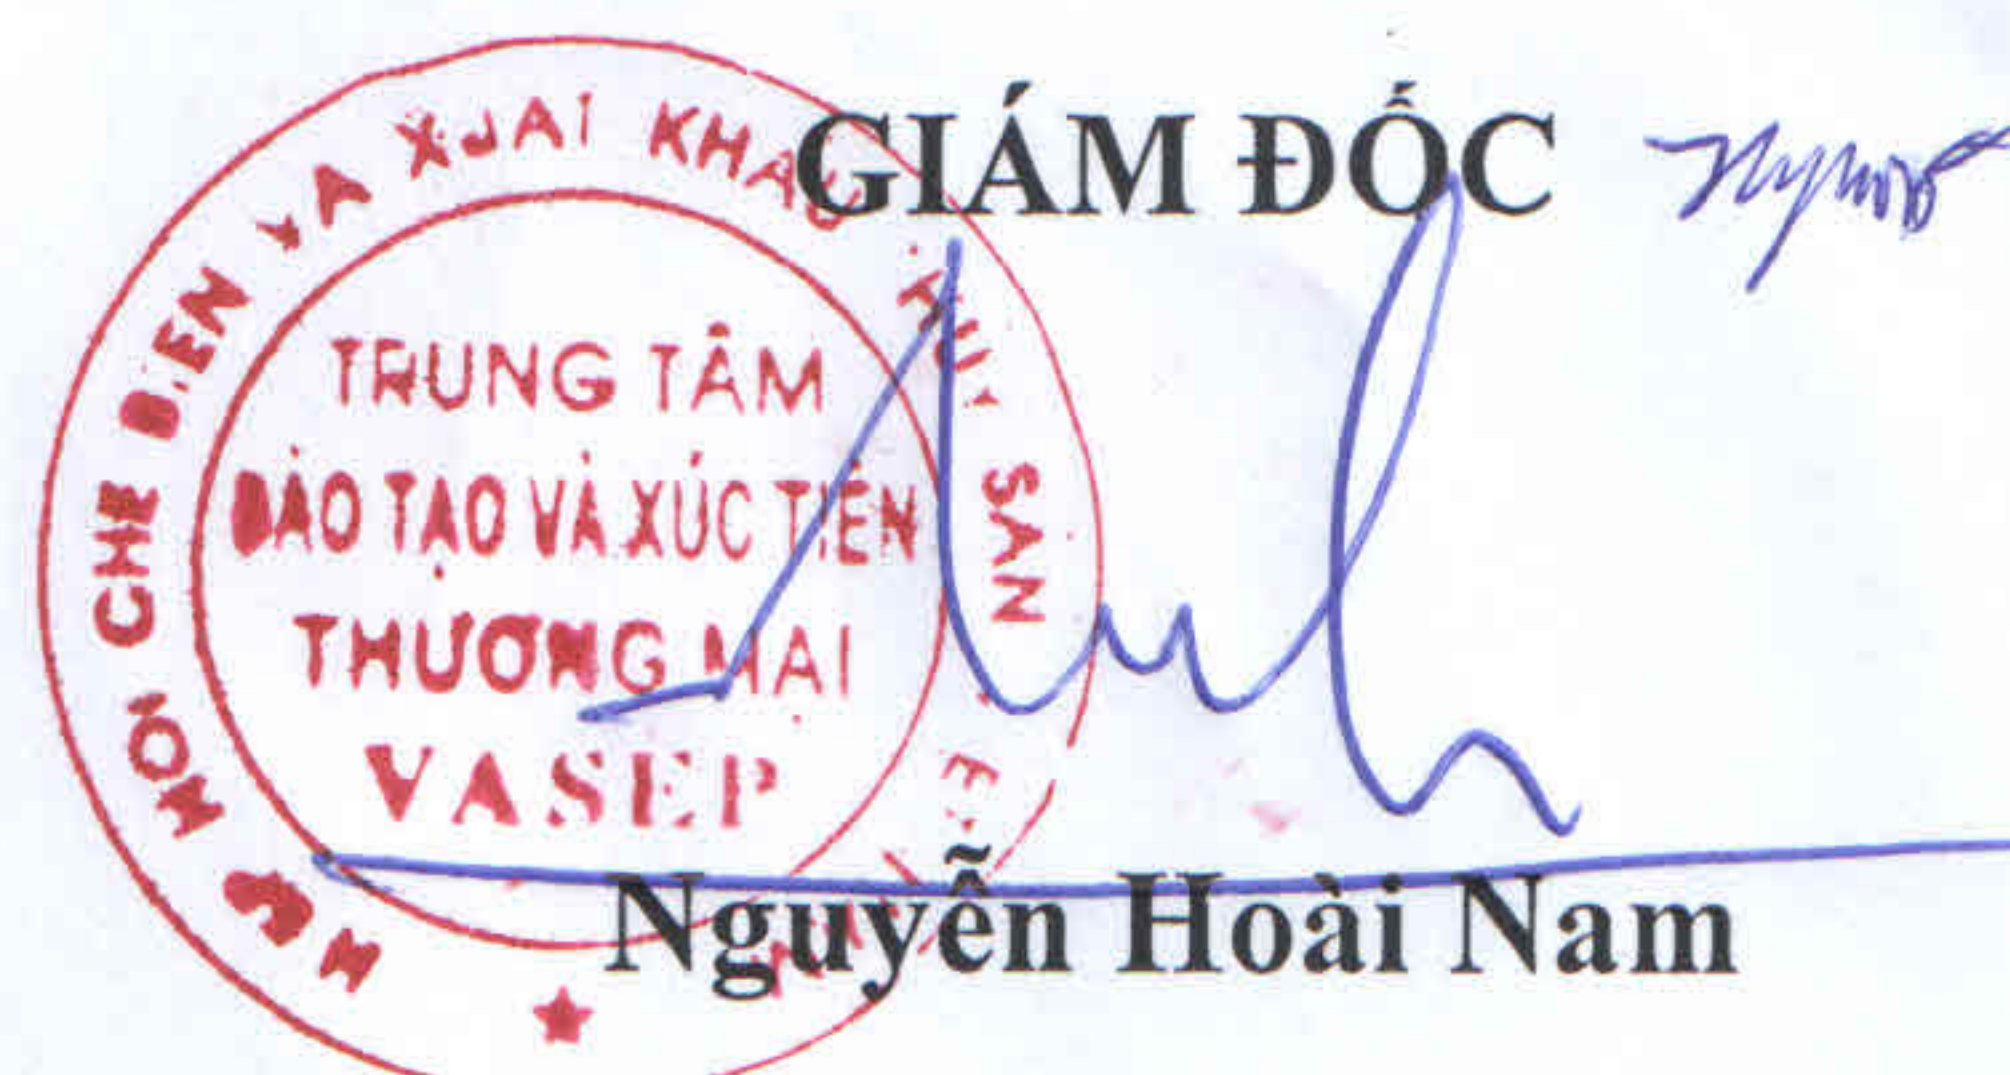 GIÁM ĐỐC
HỘI CHẾ BIẾN VÀ XUẤT KHẨU THỦY SẢN
TRUNG TÂM
ĐÀO TẠO VÀ XÚC TIẾN
THƯƠNG MẠI
VASEP
Nguyễn Hoài Nam